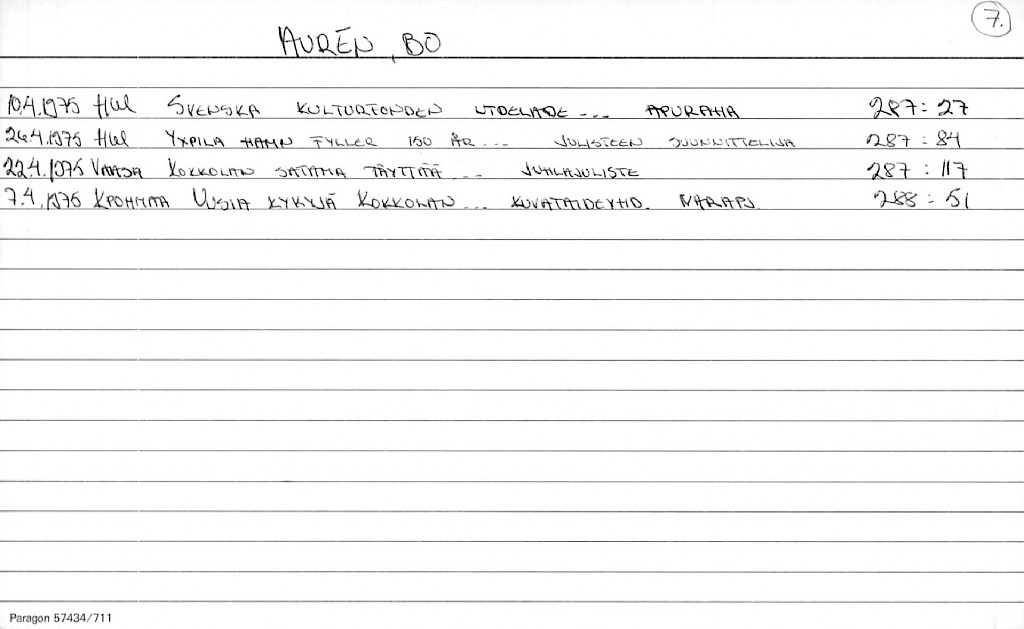 7.
AURÉN, BO
10.4.1975 HBL SVENSKA KULTURFONDEN UTDELADE... APURAHA 287:27
26.4.1975 HBL YXPILA HAMN FYLLER 150 ÅR... JULISTEEN SUUNNITTELIJA 287:84
22.4.1975 VAASA KOKKOLAN SATAMA TÄYTTÄÄ... JUHLAJULISTE 287:117
7.4.1976 KPOHMAA UUSIA KYKYJÄ KOKKOLAN... KUVATAIDEYHD. 288:51
Paragon 57434/711